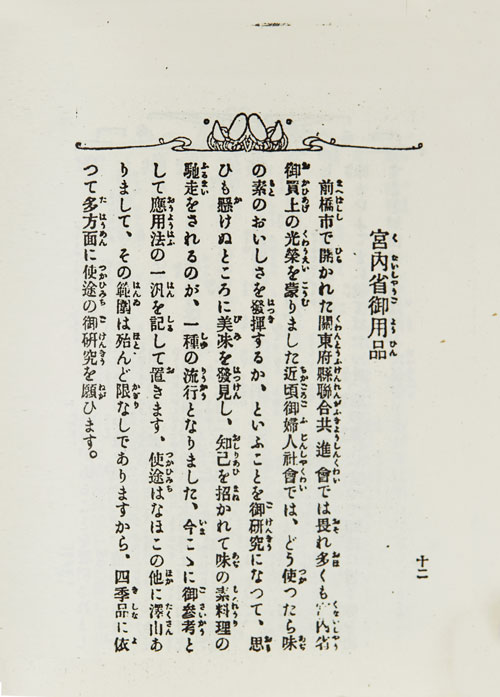 宮內省御用品
前橋市で開かれた關東府縣聯合共進會では畏れ多くも宮內省
御買上の光榮を蒙りました近頃御婦人社會では、どう使つたら味
の素のおいしさを發揮するか、といふことを御硏究になつて、思
ひも懸けぬところに美味を發見し、知己を招かれて味の素料理の
馳走をされるのが、一種の流行となりました、今こゝに御參考と
して應用法の一汎を記して置きます、使途はなほこの他に澤山あ
りまして、その範圍は殆んど限なしでありますから、四季品に依
つて多方面に使途の御硏究を願ひます。
十二